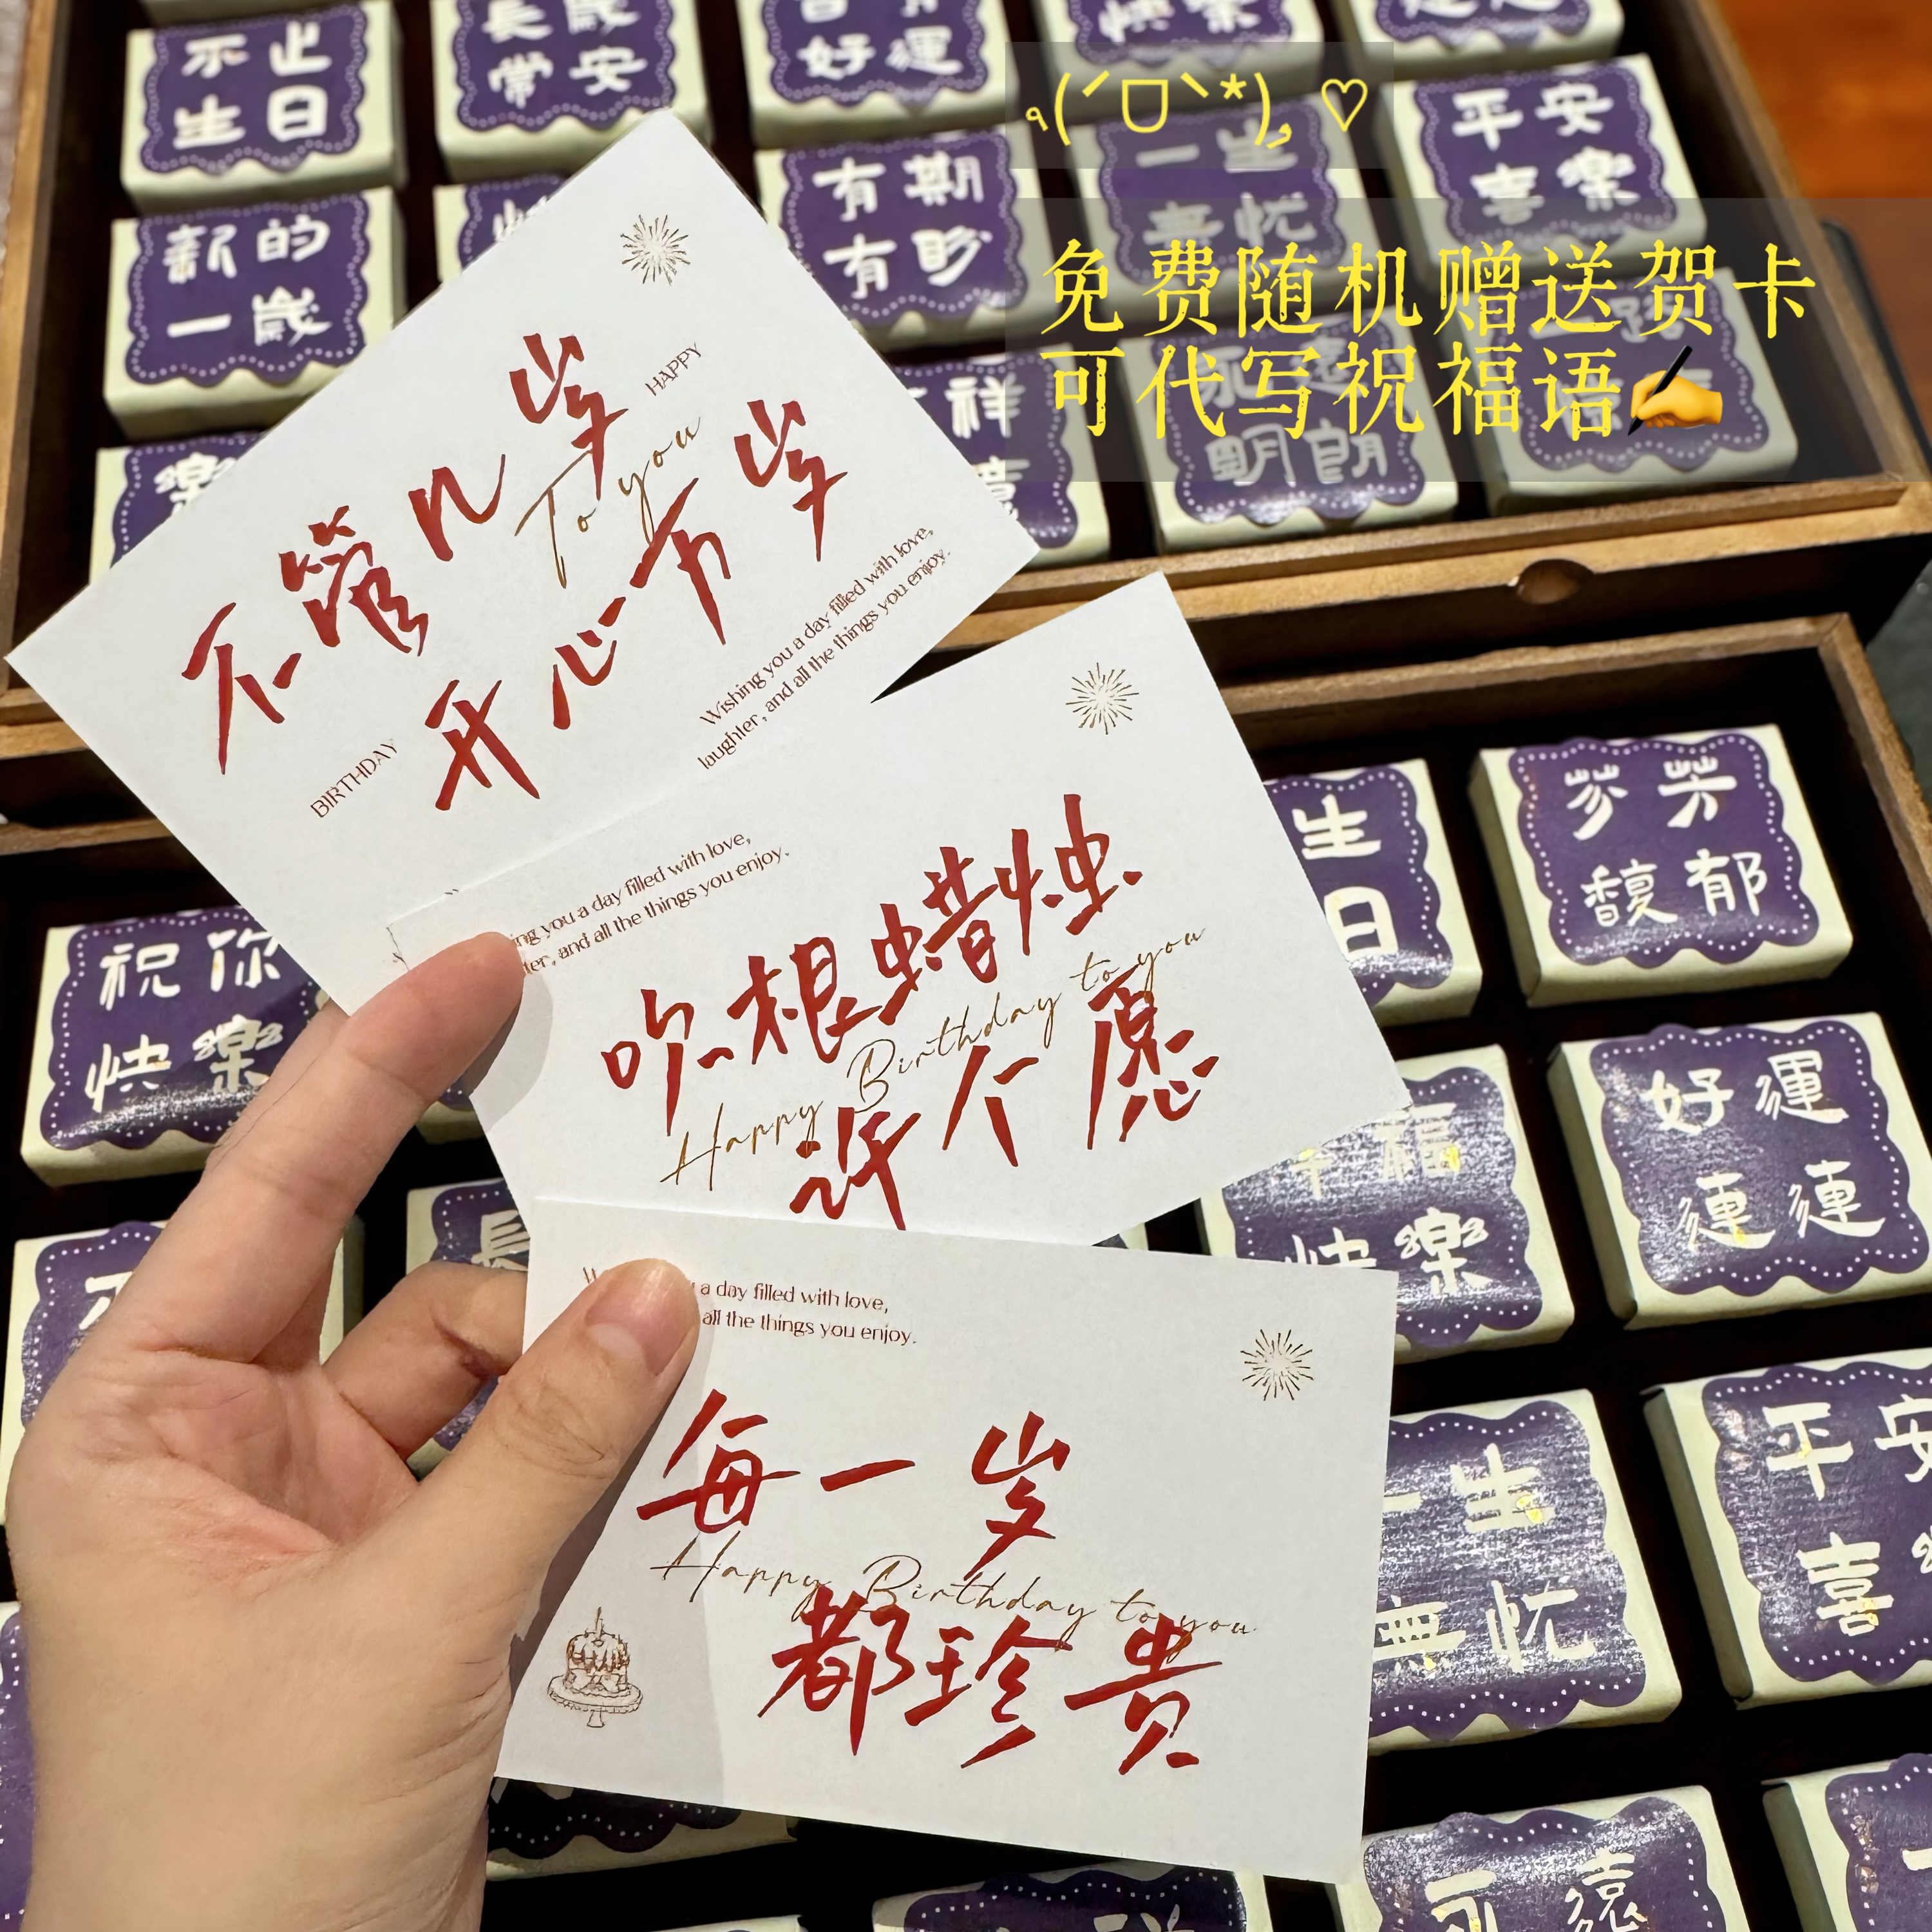 ٩(ˊᗜˋ*)و ♡
免费随机赠送贺卡
可代写祝福语✍
不止
生日
長歲
常安
好運
快樂
平安
喜樂
新的
一歲
有期
有盼
一生
無忧
祥
明朗
樂
不管几岁
HAPPY
To you
开心万岁
BIRTHDAY
Wishing you a day filled with love,
laughter, and all the things you enjoy.
ing you a day filled with love,
ter, and all the things you enjoy.
吹根蜡烛
Happy Birthday to you
许个愿
a day filled with love,
all the things you enjoy.
每一岁
Happy Birthday to you
都珍贵
生
日
芬芳
馥郁
祝你
快樂
幸福
快樂
好運
連連
長
一生
無忧
平安
喜
永遠